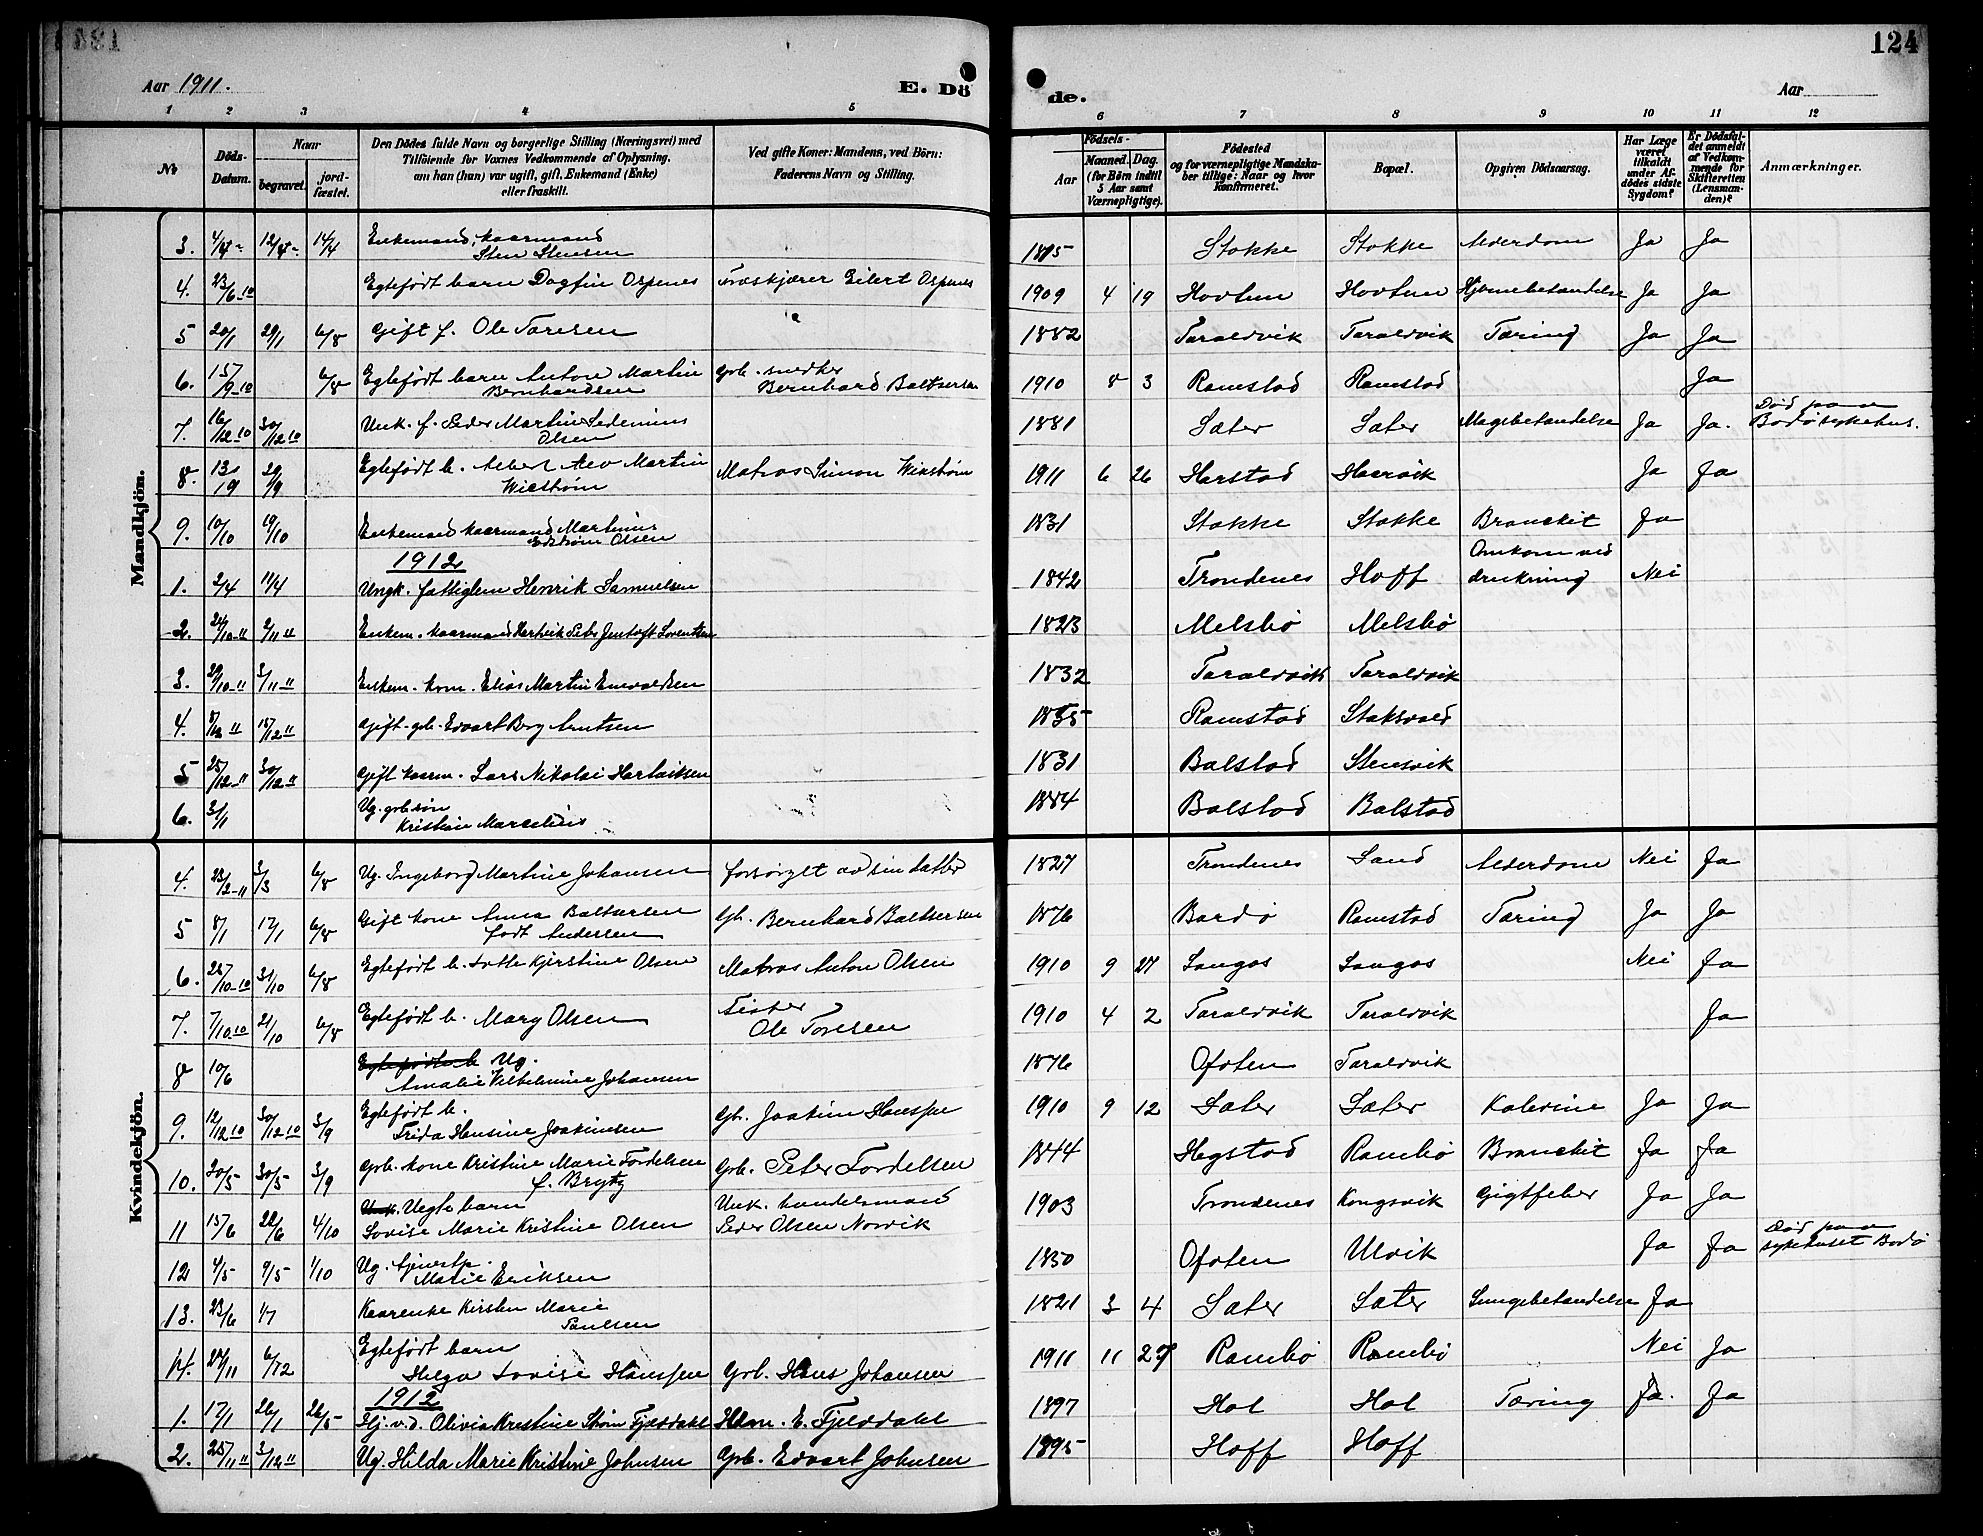 124
Aar 1911.
E. Dö
de.
Aar
1 2 3 4 5
6 7 8 9 10 11 12
No
Döds-Datum.
Naar
begravet.
jord-fæstet.
Den Dödes fulde Navn og borgerlige Stilling (Næringsvei) med
Tilföiende for Voxnes Vedkommende af Oplysning,
om han (hun) var ugift, gift, Enkemand (Enke)
eller fraskilt.
Ved gifte Koner: Mandens, ved Börn:
Faderens Navn og Stilling.
Födsels-
Aar
Maaned. Dag.
(for Börn indtil
5 Aar samt
Værnepligtige).
Födested
og for værnepligtige Mandska-
ber tillige: Naar og hvor
Konfirmeret.
Bopæl.
Opgiven Dödsaarsag.
Har Læge
været
tilkaldt
under Af-
dödes sidste
Sygdom?
Er Dödsfal-
det anmeldt
af Vedkom-
mende for
Skifteretten
(Lensman-
den)?
Anmærkninger.
Mandkjöm.
3. 12/4 14/4 Enkemand, kaarmand Sten Stensen 1815 Stokke Stokke Alderdom Ja Ja
4. 23/6-10 Egtefödt barn Dagfin Ospenes Eilert Ospenes 1909 4 19 Hovtun Hovtun Hjernebetændelse Ja Ja
5 20/1 29/1 6/8 Gift f. Ole Toresen 1882 Taraldvik Taraldvik Tæring Ja Ja
6. 15/9-10 6/8 Egtefödt barn Anton Martin Bernhardsen Grb. snedker Bernhard Baltsersen 1910 8 3 Ramstad Ramstad Ja
7. 16/12 10 30/12 10 Unk. f. Peder Martin Olsen 1881 Sæter Sæter Magebetændelse Ja Ja. Död paa Bodö sykehus.
8. 13/9 20/9 Egtefödt b. Albert Martin Wikström Matros Simon Wikström 1911 6 26 Harstad Haarvik Ja Ja
9. 10/10 19/10 Enkemand kaarmand Martinus Edström Olsen 1831 Stokke Stokke Bronchit Ja
1912
1. 2/4 11/4 Ungk. fattiglem Henrik Samuelsen 1842 Trondenes Hoff Omkom ved drukning Nei
2. 24/10-11 2/11 11 Enkem. kaarmand Hartvik Peter Jentoft Lorentsen 1823 Melsbö Melsbö
3. 3/11-11 Enkem. Elias Martin Enevaldsen 1832 Taraldvik Taraldvik
4. 15/12 11 Gift. grb. Edvart Berg Arntsen 1835 Ramstad
5 25/12-11 30/12-11 Gift kaarm. Lars Nikolai Hartviksen 1831 Balstad Stensvik
6. 3/1 Ug. grb.sön Kristian Marcelius 1884 Balstad Balstad
Kvindekjön.
4. 23/2-11 3/3 6/8 Ug. Ingeborg Martine Johansen forsörget av sin datter 1827 Trondenes Sand Alderdom Nei Ja
5 8/1 17/1 6/8 Gift kone Anna Baltsersen födt Andersen Gb. Bernhard Baltsersen 1876 Bardö Ramstad Tæring Ja Ja
6. 25/10-10 31/10 6/8 Egtefödt b. Kjerstine Olsen Matros Anton Olsen 1910 9 27 Sangas Sangas Nei Ja
7. 7/10.10 21/10 6/8 Egtefödt b. Mary Olsen Fisker Ole Toresen 1910 4 2 Taraldvik Taraldvik Ja
8 10/6 Ug. Amalie Vilhelmine Johansen 1876 Ofoten Taraldvik
9. 12/12 10 30/12 10 3/9 Egtefödt b. Frida Hansine Joakimsen Gb. Joakim Hanssen 1910 9 12 Sæter Sæter Kolerine Ja Ja
10. 30/5 30/5 3/9 Grb. kone Kristine Marie Tordelsen f. Brygg Grb. Peter Tordelsen 1844 Hegstad Rambö Bronchit Ja Ja
11 15/6 22/6 4/10 Uegte barn Lovise Marie Kristine Olsen Unk. handelsmand Peder Olsen Norvik 1903 Trondenes Kongsvik Gigtfeber Ja Ja
12 4/5 9/5 1/10 Ug. tjenestp. Marie Eriksen 1850 Ofoten Ulvik Ja Ja Död paa sykehuset Bodö
13. 23/6 1/7 Kaarenke Kirsten Marie Paulsen 1821 3 4 Sæter Sæter Lungebetændelse Ja
14. 27/11 6/12 Egtefödt barn Helga Lovise Hanssen Grb. Hans Johansen 1911 11 27 Rambö Rambö Nei Ja
1912
1. 17/1 26/1 26/5 Hj. v. d. Olivia Kristine Ström Fjelddahl E. Fjelddahl 1897 Hol Hol Tæring Ja. Ja
2. 25/11 11 3/12 11 Ug. Hilda Marie Kristine Johnsen Grb. Edvart Johnsen 1895 Hoff Hoff